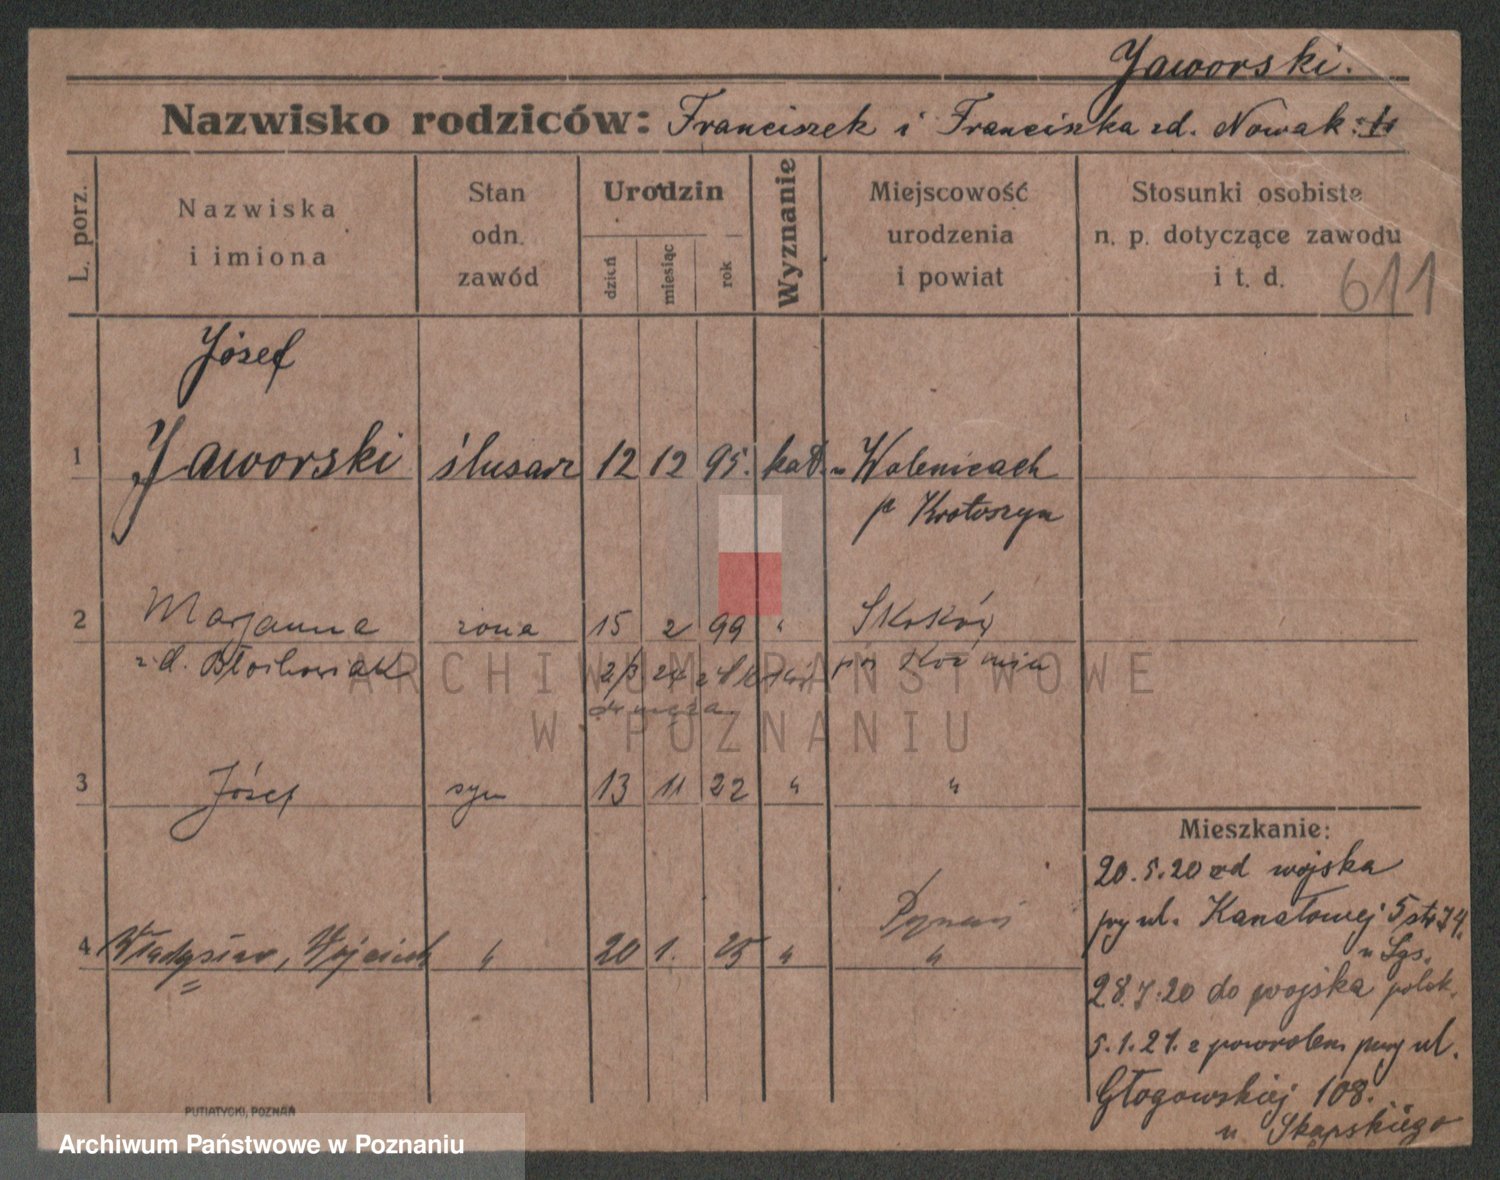 Jaworski.
Nazwisko rodziców: Franciszek i Franciszka zd. Nowak
L. porz.
Nazwiska
i imiona
Stan
odn.
zawód
Urodzin
dzień
miesiąc
rok
Wyznanie
Miejscowość
urodzenia
i powiat
Stosunki osobiste
n. p. dotyczące zawodu
i t. d.
611
Józef
1 Jaworski ślusarz 12 12 95. kat. Walenicach
p Krotoszyn
2 Marjanna żona 15 2 99 " Skoków
z d. Błochowiak 2/3 24 z Koźmin
do męża
3 Józef syn 13 11 22 " "
Poznań
4 Władysław, Wojciech " 20 1. 25 " "
Mieszkanie:
20.5.20 od wojska
przy ul. Kanałowej 5 str. 74.
u Sgs.
28.7.20 do wojska polsk.
5.1.21. z powrotem przy ul.
Głogowskiej 108.
u Skąpskiego
PUTIATYCKI, POZNAŃ
ARCHIWUM PAŃSTWOWE
W POZNANIU
Archiwum Państwowe w Poznaniu